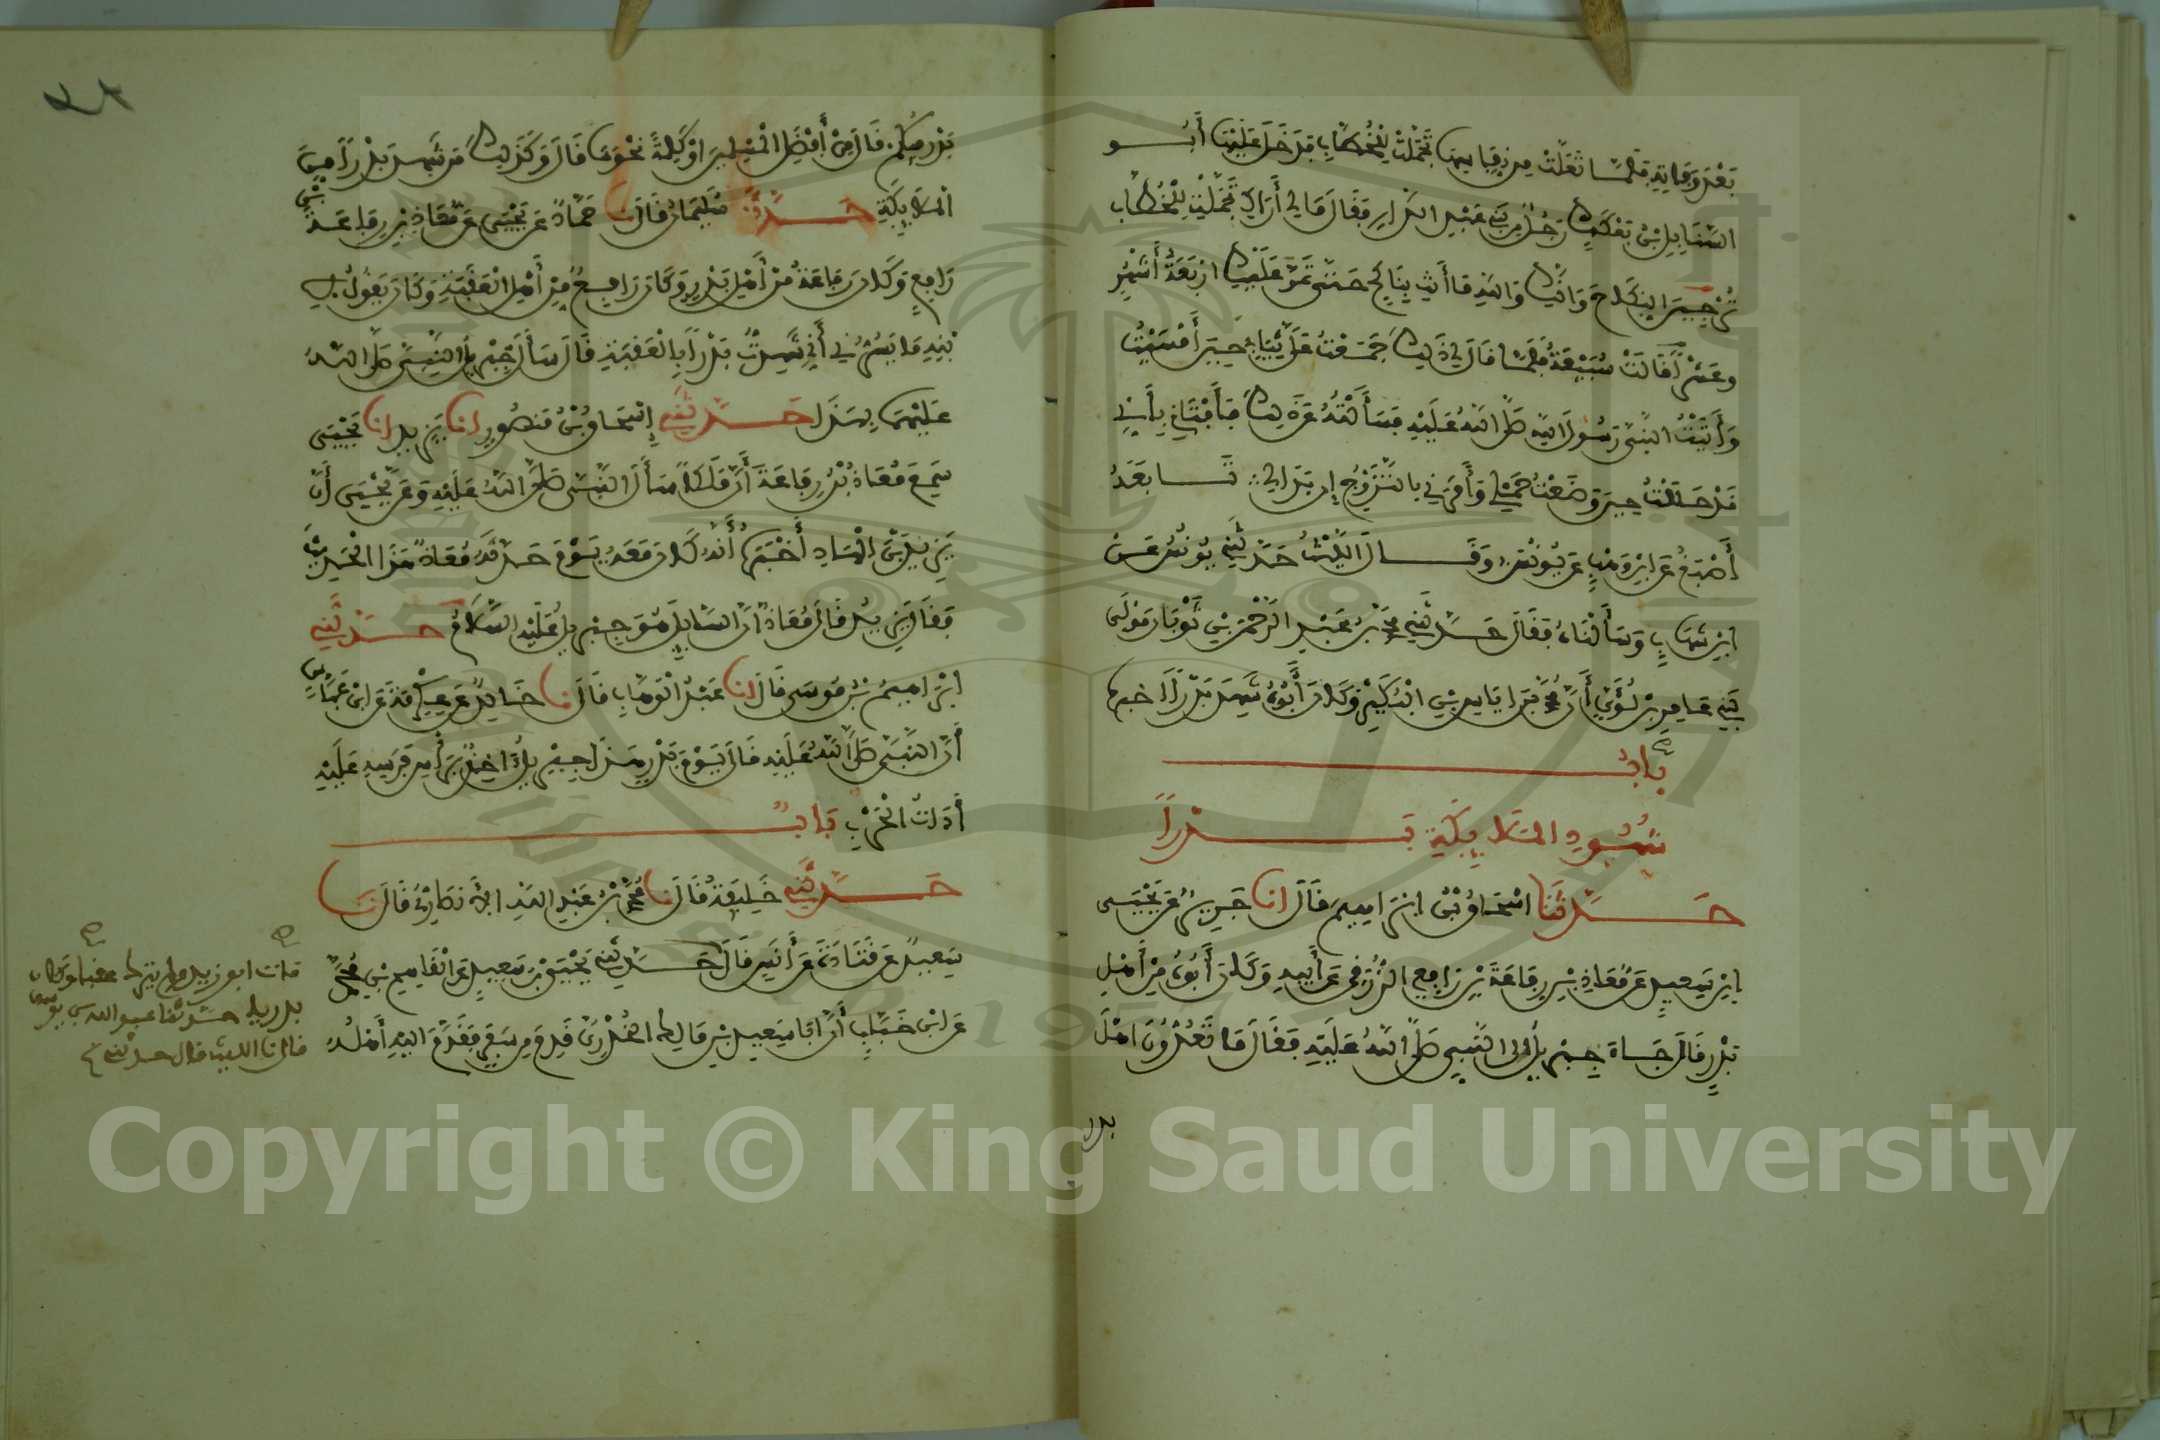 بَعْدَ وَفَاتِهِ فَلَمَّا تَعَلَّتْ مِن نِفَاسِهَا تَجَمَّلَتْ لِلْخُطَّابِ فَدَخَلَ عَلَيْهَا أَبُو
السَّنَابِلِ بْنُ بَعْكَكٍ رَجُلٌ مِن بَنِي عَبْدِ الدَّارِ فَقَالَ مَا لِي أَرَاكِ تَجَمَّلْتِ لِلْخُطَّابِ
تُرَجِّينَ النِّكَاحَ وَإِنَّكِ وَاللهِ مَا أَنتِ بِنَاكِحٍ حَتَّى تَمُرَّ عَلَيْكِ أَرْبَعَةُ أَشْهُرٍ
وعَشْرٌ قَالَتْ سُبَيْعَةُ فَلَمَّا قَالَ لِي ذَلِكَ جَمَعْتُ عَلَيَّ ثِيَابِي حِينَ أَمْسَيْتُ
وَأَتَيْتُ رَسُولَ اللهِ صَلَّى اللهُ عَلَيْهِ فَسَأَلْتُهُ عَن ذَلِكَ فَأَفْتَانِي بِأَنِّي
قَدْ حَلَلْتُ حِينَ وَضَعْتُ حَمْلِي وَأَمَرَنِي بِالتَّزَوُّجِ إِن بَدَا لِي تَابَعَهُ
أَصْبَغُ عَن ابْنِ وَهْبٍ عَن يُونُسَ وَقَالَ اللَّيْثُ حَدَّثَنِي يُونُسُ عَن
ابْنِ شِهَابٍ وَسَأَلْنَاهُ فَقَالَ حَدَّثَنِي مُحَمَّدُ بْنُ عَبْدِ الرَّحْمَنِ بْنِ ثَوْبَانَ مَوْلَى
بَنِي عَامِرِ بْنِ لُؤَيٍّ أَنَّ مُحَمَّدَ بْنَ إِيَاسِ بْنِ الْبُكَيْرِ وَكَانَ أَبُوهُ شَهِدَ بَدْرًا أَخْبَرَهُ
بَابُ
شُهُودِ الْمَلَائِكَةِ بَدْرًا
حَدَّثَنَا إِسْحَاقُ بْنُ إِبْرَاهِيمَ قَالَ انا جَرِيرٌ عَن يَحْيَى
ابْنِ سَعِيدٍ عَن مُعَاذِ بْنِ رِفَاعَةَ بْنِ رَافِعٍ الزُّرَقِيِّ عَن أَبِيهِ وَكَانَ أَبُوهُ مِنْ أَهْلِ
بَدْرٍ قَالَ جَاءَ جِبْرِيلُ إِلَى النَّبِيِّ صَلَّى اللهُ عَلَيْهِ فَقَالَ مَا تَعُدُّونَ أَهْلَ
بدر
بَدْرٍ فِيكُمْ قَالَ مِنْ أَفْضَلِ الْمُسْلِمِينَ أَوْ كَلِمَةً نَحْوَهَا قَالَ وَكَذَلِكَ مَن شَهِدَ بَدْرًا مِنَ
الْمَلَائِكَةِ حَدَّثَنَا سُلَيْمَانُ قَالَ نا حَمَّادٌ عَن يَحْيَى عَن مُعَاذِ بْنِ رِفَاعَةَ بْنِ
رَافِعٍ وَكَانَ رِفَاعَةُ مِنْ أَهْلِ بَدْرٍ وَكَانَ رَافِعٌ مِنْ أَهْلِ الْعَقَبَةِ وَكَانَ يَقُولُ لِ
بْنِهِ مَا يَسُرُّنِي أَنِّي شَهِدْتُ بَدْرًا بِالْعَقَبَةِ قَالَ سَأَلَ جِبْرِيلُ النَّبِيَّ صَلَّى اللهُ
عَلَيْهِمَا بِهَذَا حَدَّثَنِي إِسْحَاقُ بْنُ مَنصُورٍ انا يَزِيدُ انا يَحْيَى
سَمِعَ مُعَاذَ بْنَ رِفَاعَةَ أَنَّ مَلَكًا سَأَلَ النَّبِيَّ صَلَّى اللهُ عَلَيْهِ وَعَن يَحْيَى أَنَّ
يَزِيدَ بْنَ الْهَادِ أَخْبَرَهُ أَنَّهُ كَانَ مَعَهُ يَوْمَ حَدَّثَهُ مُعَاذٌ هَذَا الْحَدِيثَ
فَقَالَ يَزِيدُ قَالَ مُعَاذٌ إِنَّ السَّائِلَ هُوَ جِبْرِيلُ عَلَيْهِ السَّلَامُ حَدَّثَنِي
إِبْرَاهِيمُ بْنُ مُوسَى قَالَ انا عَبْدُ الْوَهَّابِ قَالَ نا خَالِدٌ عَن عِكْرِمَةَ عَن ابْنِ عَبَّاسٍ
أَنَّ النَّبِيَّ صَلَّى اللهُ عَلَيْهِ قَالَ يَوْمَ بَدْرٍ هَذَا جِبْرِيلُ آخِذٌ بِرَأْسِ فَرَسِهِ عَلَيْهِ
أَدَاةُ الْحَرْبِ بَابٌ
حَدَّثَنِي خَلِيفَةُ قَالَ نا مُحَمَّدُ بْنُ عَبْدِ اللهِ الْأَنصَارِيُّ قَالَ نا
سَعِيدٌ عَن قَتَادَةَ عَن أَنَسٍ قَالَ حَدَّثَنِي يَحْيَى بْنُ سَعِيدٍ عَن الْقَاسِمِ بْنِ مُحَمَّدٍ
عَن ابْنِ خَبَّابٍ أَنَّ أَبَا سَعِيدِ بْنَ مَالِكٍ الْخُدْرِيَّ قَدِمَ مِن سَفَرٍ فَقَدَّمَ إِلَيْهِ أَهْلُهُ
مات ابو زيد ولم يترك عقبا وكان
بدريا حدثنا عبد الله بن يوسف
قال نا الليث قال حدثني